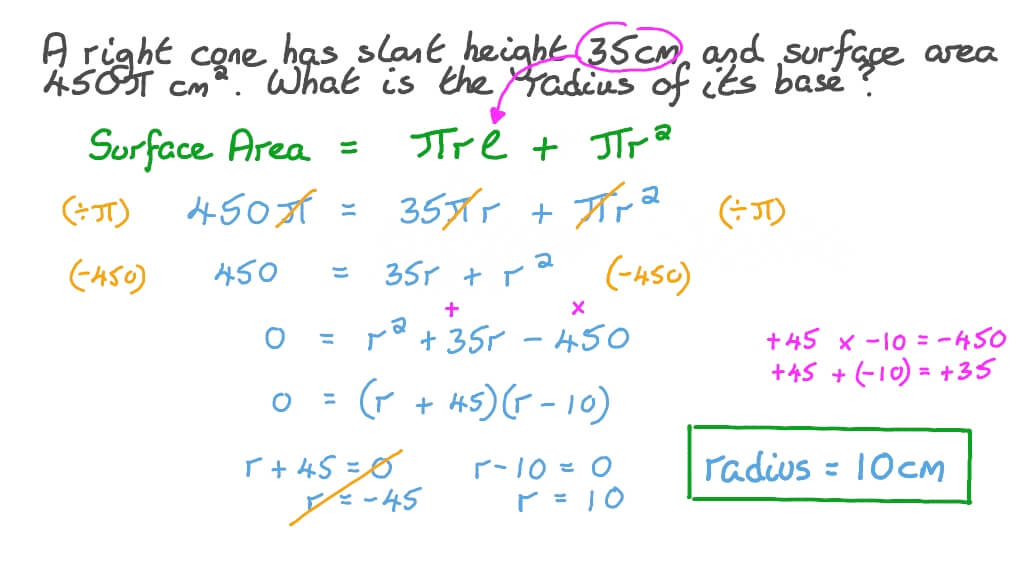 A right cone has slant height 35cm and surface area
450π cm². What is the radius of its base?
Surface Area = πrl + πr²
(÷π) 450π = 35πr + πr² (÷π)
(-450) 450 = 35r + r² (-450)
+ ×
0 = r² + 35r - 450
+45 × -10 = -450
+45 + (-10) = +35
0 = (r + 45)(r - 10)
r + 45 = 0 r - 10 = 0
r = -45 r = 10
radius = 10cm